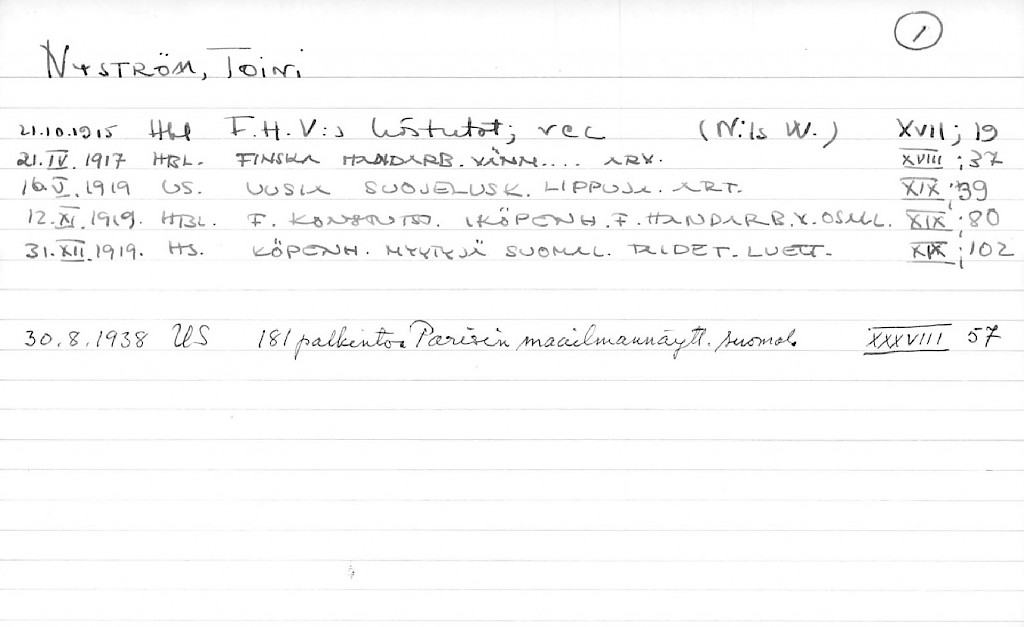 1
NYSTRÖM, TOINI
21.10.1915 Hbl F.H.V:s höstutst; rec (Nils W.) XVII; 19
21.IV.1917 HBL. FINSKA HANDARB. VÄNN.... ARK. XVIII; 37
16.V.1919 US. UUSIA SUOJELUSK. LIPPUJA. ART. XIX; 39
12.XI.1919. HBL. F. KONSTUTST. I KÖPENH. F. HANDARB.V. OSALL. XIX; 80
31.XII.1919. HS. KÖPENH. MYYTYJÄ SUOMAL. TAIDET. LUETT. XIX; 102
30.8.1938 US 181 palkintoa Parisin maailmannäytt. suomal. XXXVIII 57